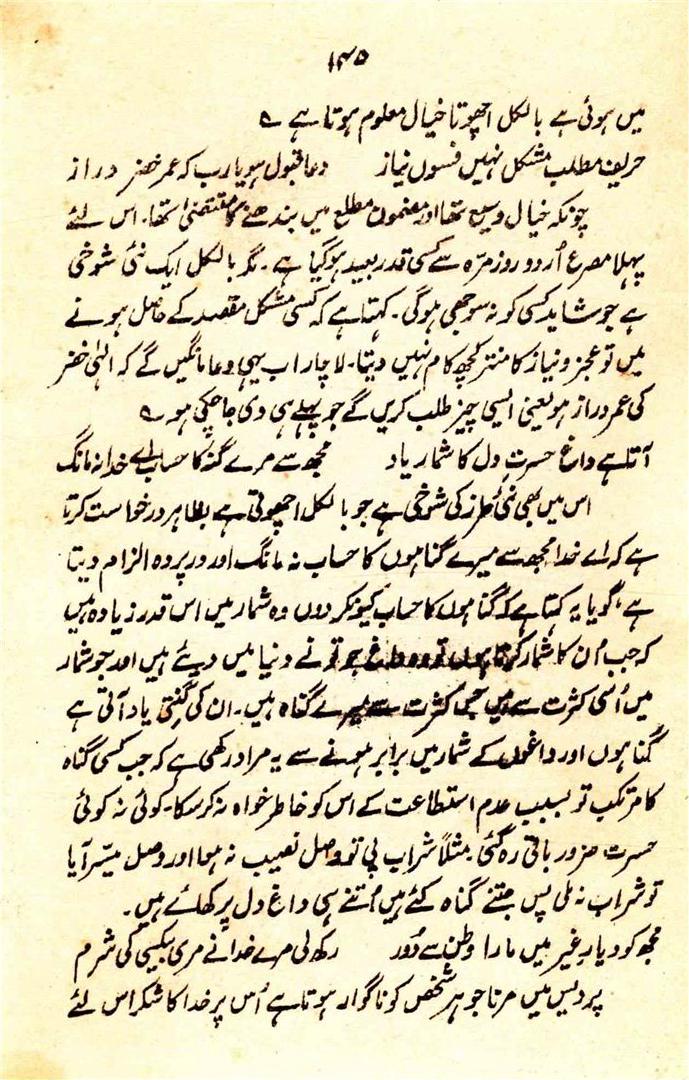 ۱۴۵
میں ہوئی ہے بالکل اچھوتا خیال معلوم ہوتا ہے ؎
حریف مطلب مشکل نہیں فسون نیاز دعا قبول ہو یارب کہ عمر خضر دراز
چونکہ خیال وسیع تھا اور مضمون مطلع میں بندھنے کا مقتضی تھا۔ اس لئے
پہلا مصرع اُردو روزمرہ سے کسی قدر بعید ہوگیا ہے۔ مگر بالکل ایک نئی شوخی
ہے جو شاید کسی کو نہ سوجھی ہوگی۔ کہتا ہے کہ کسی مشکل مقصد کے حاصل ہونے
میں تو عجز و نیاز کا منتر کچھ کام نہیں دیتا۔ لاچار اب یہی دعا مانگیں گے کہ الٰہی خضر
کی عمر دراز ہو یعنی ایسی چیز طلب کریں گے جو پہلے ہی دی جا چکی ہو ؎
آتا ہے داغ حسرت دل کا شمار یاد مجھ سے مرے گنہ کا حساب اے خدا نہ مانگ
اس میں بھی نئی طرز کی شوخی ہے جو بالکل اچھوتی ہے بظاہر درخواست کرتا
ہے کہ اے خدا مجھ سے میرے گناہوں کا حساب نہ مانگ اور در پردہ الزام دیتا
ہے، گویا یہ کہتا ہے کہ گناہوں کا حساب کیونکر دوں وہ شمار میں اس قدر زیادہ ہیں
کہ جب اُن کا شمار کرتا ہوں تو وہ داغ جو تو نے دنیا میں دیئے ہیں اور جو شمار
میں اُسی کثرت سے ہیں جس کثرت سے میرے گناہ ہیں۔ ان کی گنتی یاد آتی ہے
گناہوں اور داغوں کے شمار میں برابر ہونے سے یہ مراد رکھی ہے کہ جب کسی گناہ
کا مرتکب تو بسبب عدم استطاعت کے اس کو خاطر خواہ نہ کرسکا۔ کوئی نہ کوئی
حسرت ضرور باقی رہ گئی۔ مثلاً شراب پی تو وصل نصیب نہ ہوا اور وصل میسر آیا
تو شراب نہ ملی پس جتنے گناہ کئے ہیں اُتنے ہی داغ دل پر کھائے ہیں۔
مجھ کو دیار غیر میں مارا وطن سے دُور رکھ لی مرے خدا نے مری بیکسی کی شرم
پردیس میں مرنا جو ہر شخص کو ناگوار ہوتا ہے اُس پر خدا کا شکر اس لئے